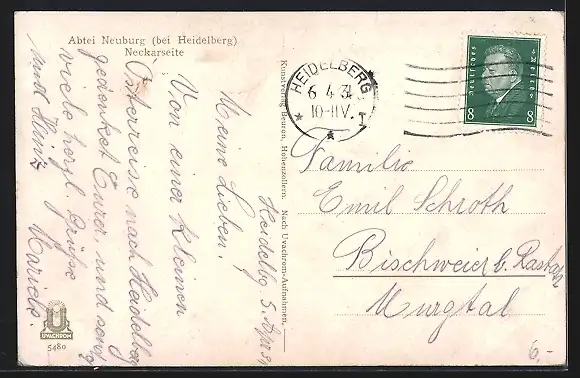 Abtei Neuburg (bei Heidelberg)
Neckarseite
Heidelbg 5. Apr 31
Meine Lieben.
Von einer kleinen
Osterreise nach Heidelberg
gedenket Eurer und send
viele herzl. Grüße
und Heinz Mariele.
UVACHROM
5480
Kunstverlag Beuron, Hohenzollern. Nach Uvachrom-Aufnahmen.
HEIDELBERG
6 4 31
10-11V.
* I
*
Deutsches Reich
8 8
Familie
Emil Schroth
Bischweier b. Rastatt
Murgtal
6.-